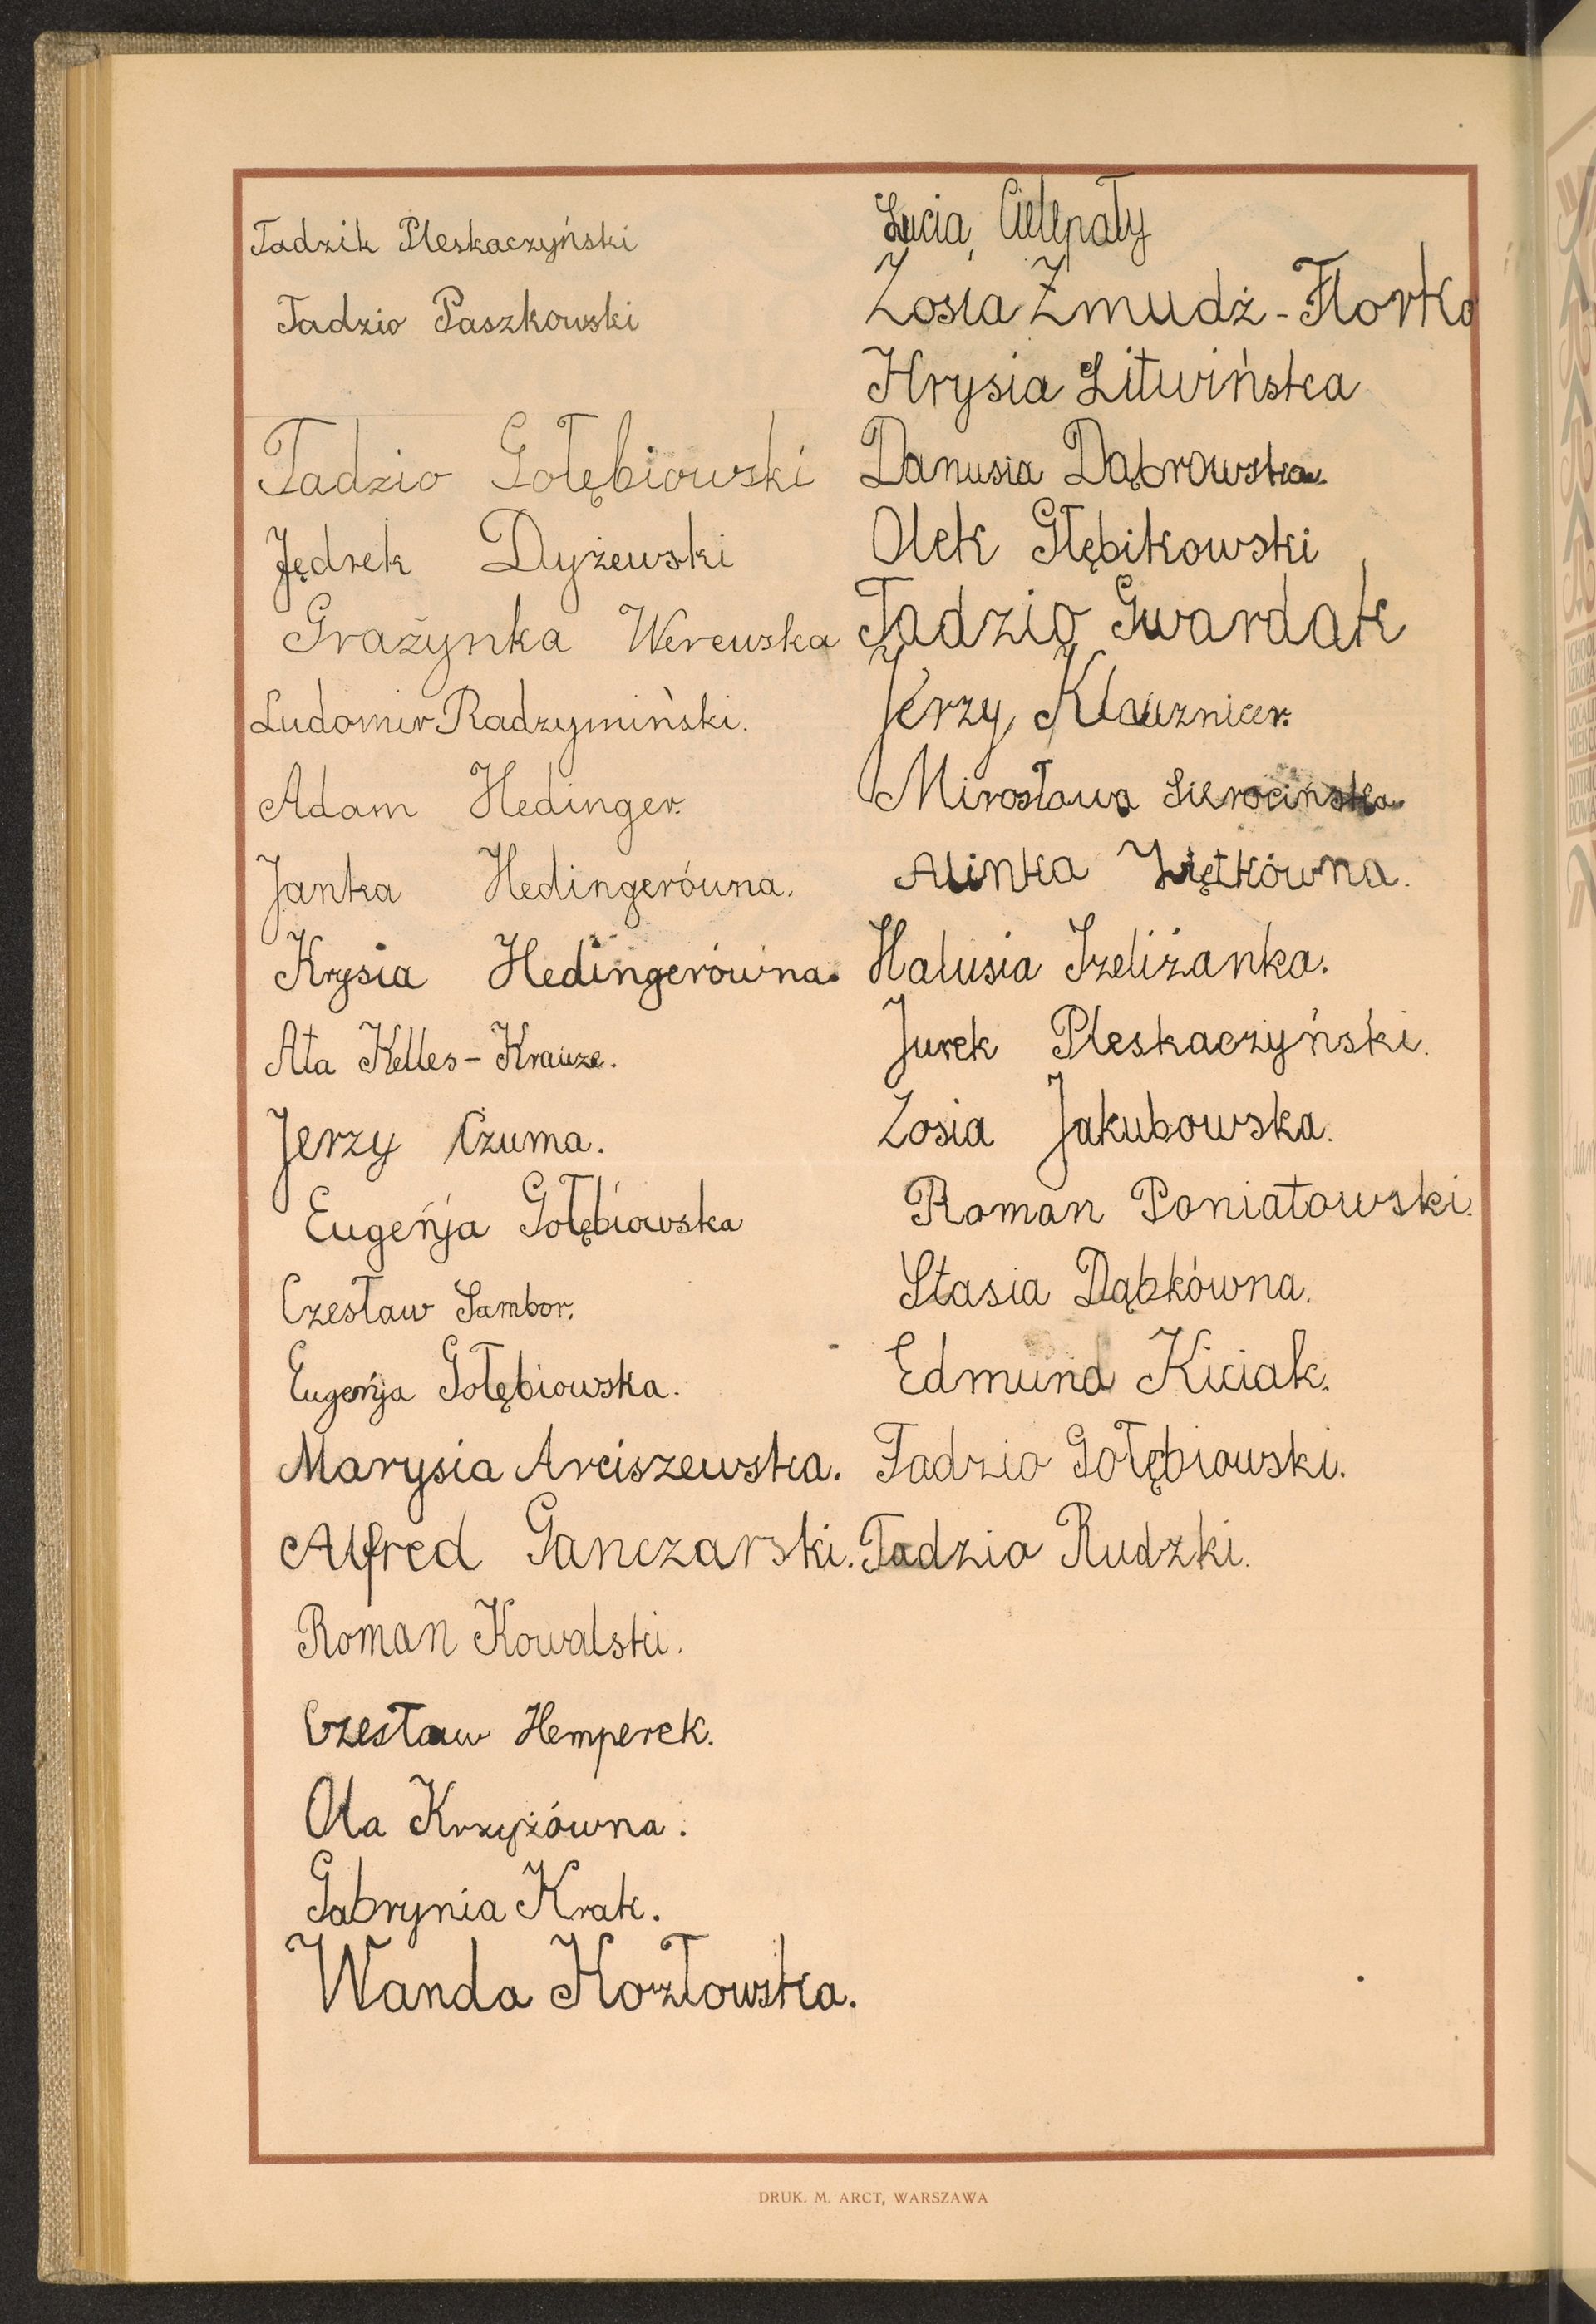 Tadzik Pleskaczyński
Tadzio Paszkowski
Tadzio Gołębiowski
Jędrek Dyżewski
Grażynka Werewska
Ludomir Radzymiński.
Adam Hedinger.
Janka Hedingerówna.
Krysia Hedingerówna.
Ata Kelles-Krauze.
Jerzy Czuma.
Eugenja Gołębiowska
Czesław Sambor.
Eugenja Gołębiowska.
Marysia Arciszewska.
Alfred Ganczarski.
Roman Kowalski.
Czesław Hemperek.
Ola Krzyżówna.
Gabrynia Krak.
Wanda Kozłowska.
Lucia Cielepały
Zosia Żmudź-Florko
Krysia Litwińska
Danusia Dąbrowska.
Olek Głębikowski
Tadzio Gwardak
Jerzy Klauznicer.
Mirosława Sierocińska.
Alinka Ziętkówna.
Halusia Szeliżanka.
Jurek Pleskaczyński.
Zosia Jakubowska.
Roman Poniatowski.
Stasia Dąbkówna.
Edmund Kiciak.
Tadzio Gołębiowski.
Tadzio Rudzki.
DRUK. M. ARCT, WARSZAWA